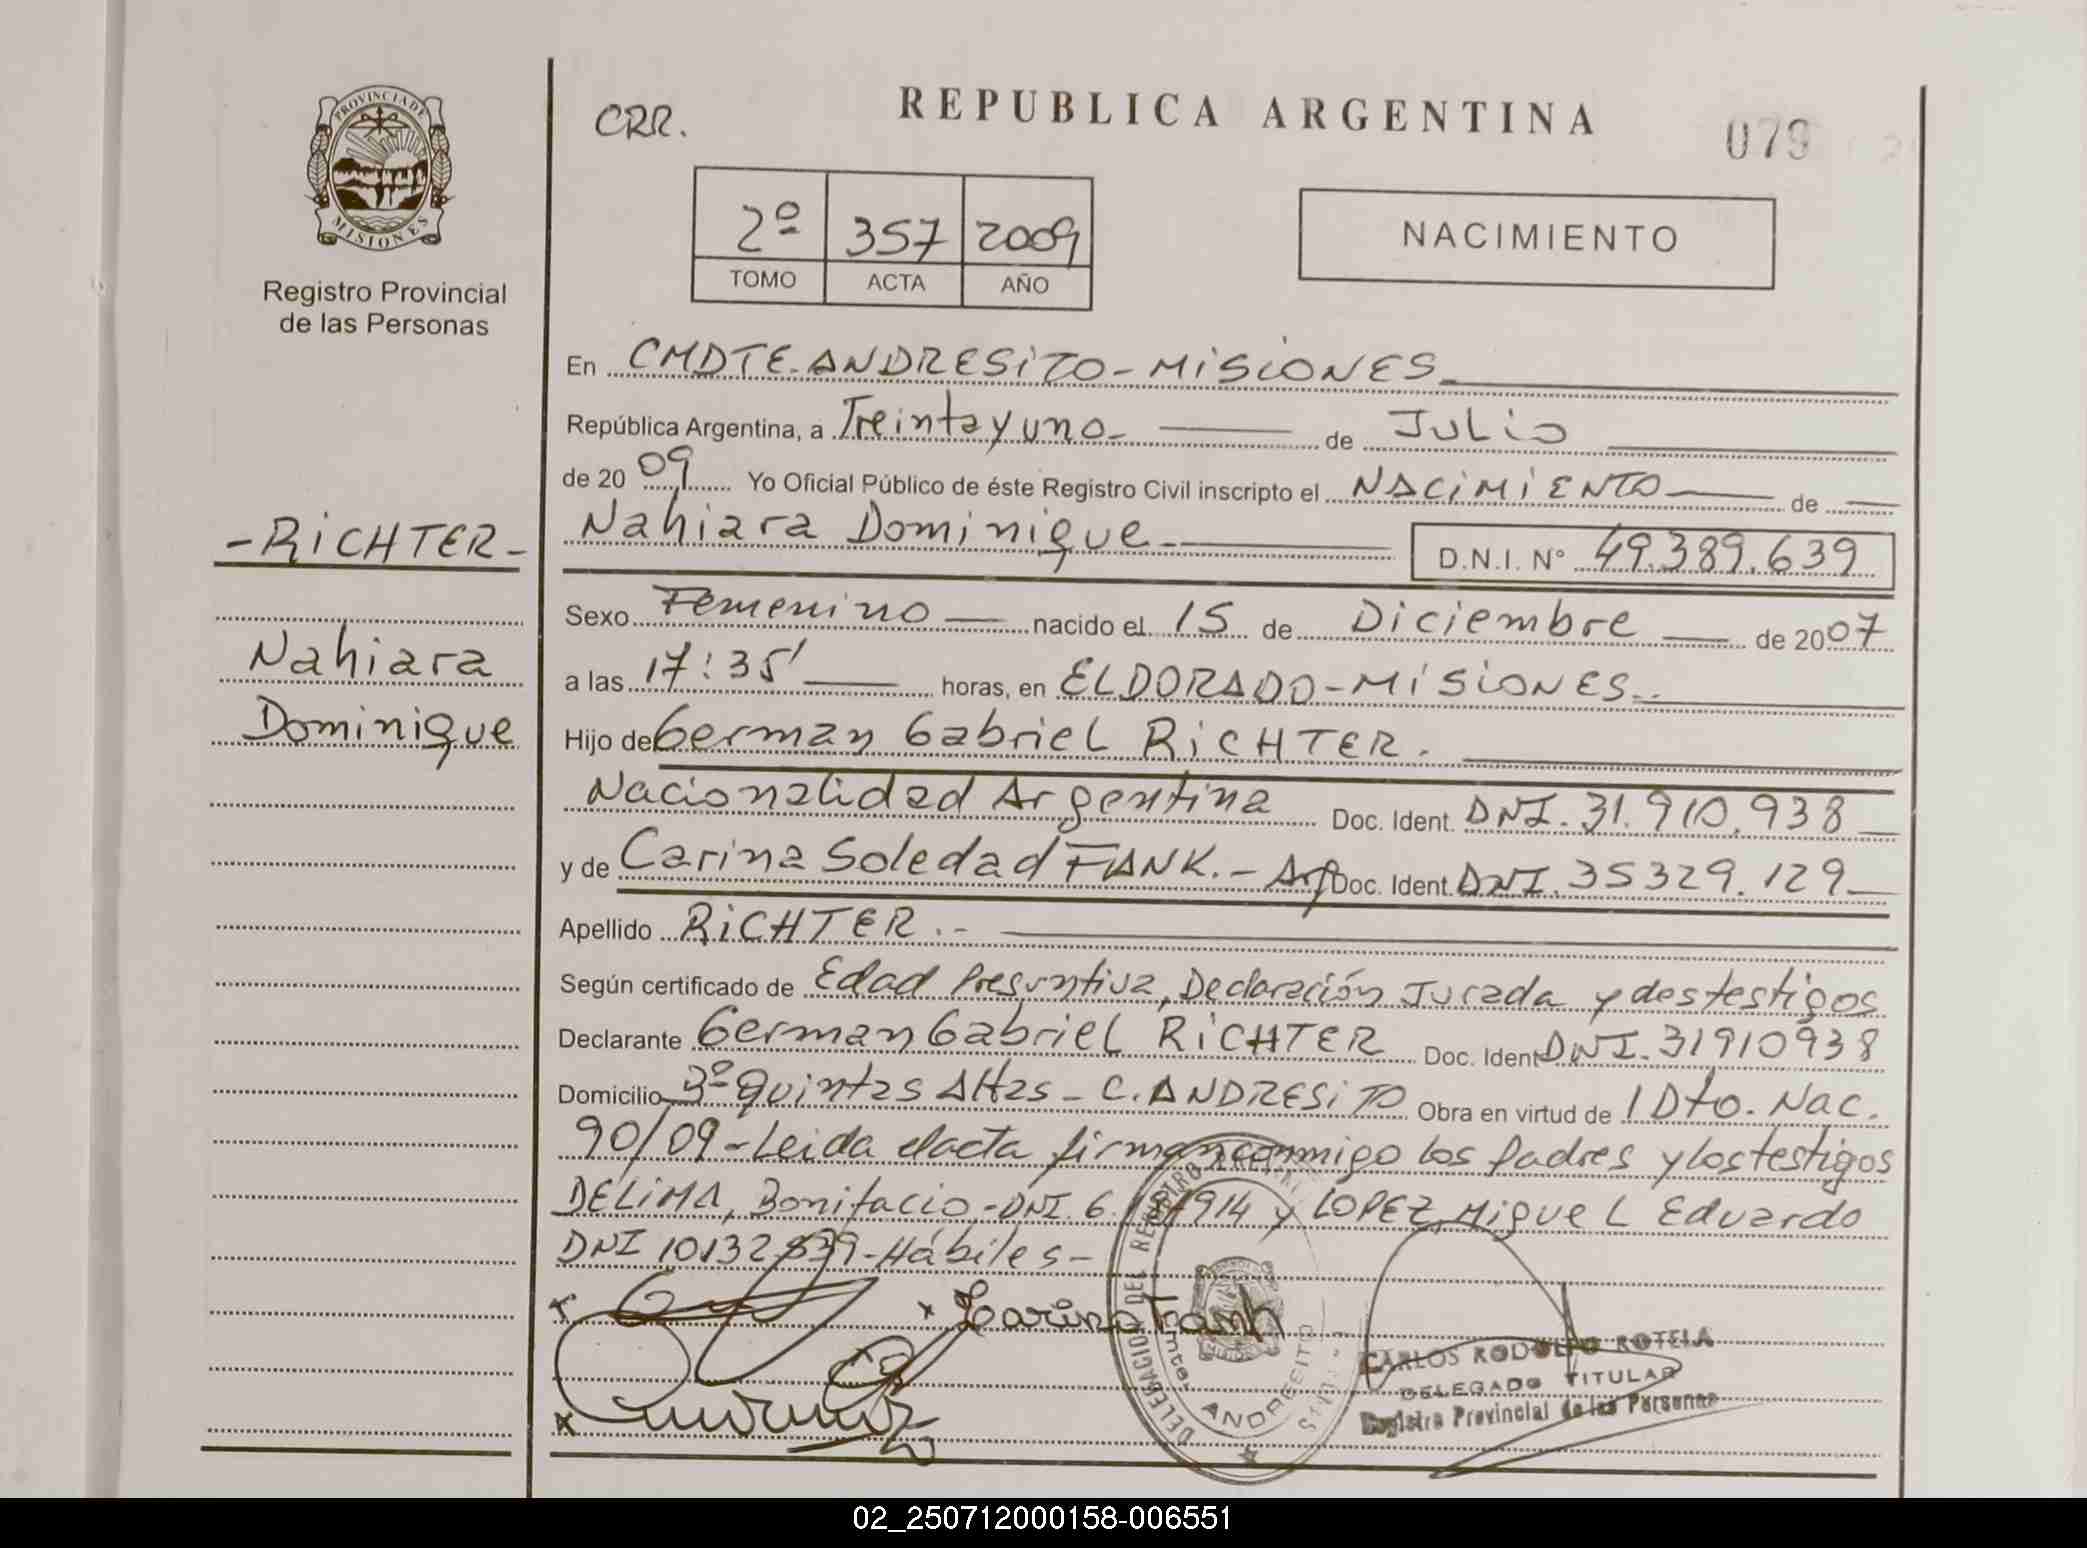 PROVINCIA DE
MISIONES
Registro Provincial
de las Personas
-RiCHTER-
Nahiara
Dominique
CRR.
REPUBLICA ARGENTINA
079
2º 357 2009
TOMO ACTA AÑO
NACIMIENTO
En CMDTE. ANDRESiTO - MiSiONES
República Argentina, a Treinta y uno - de Julio
de 2009 Yo Oficial Público de éste Registro Civil inscripto el NACiMiENTO de
Nahiara Dominique D.N.I. Nº 49.389.639
Sexo Femenino nacido el 15 de Diciembre de 2007
a las 17:35' horas, en ELDORADO - MiSiONES
Hijo de German Gabriel RiCHTER.
Nacionalidad Argentina Doc. Ident. DNI. 31.910.938
y de Carina Soledad FANK. - Arg Doc. Ident. DNI. 35329.129
Apellido RiCHTER . -
Según certificado de Edad Presuntiva, Declaración Jurada y dos testigos
Declarante German Gabriel RiCHTER Doc. Ident DNI. 31910938
Domicilio 3º Quintas Altas - C. ANDRESiTO Obra en virtud de 1 Dto. Nac.
90/09 - Leida el acta firman conmigo los Padres y los testigos
DELiMA, Bonifacio - DNI. 6. y LOPEZ, Miguel Eduardo
DNI - Hábiles -
x x Carina Fank
x
DELEGACION DEL REGISTRO
ANDRECITO
CARLOS RODOLFO ROTELA
DELEGADO TITULAR
Registro Provincial de las Personas
02_250712000158-006551